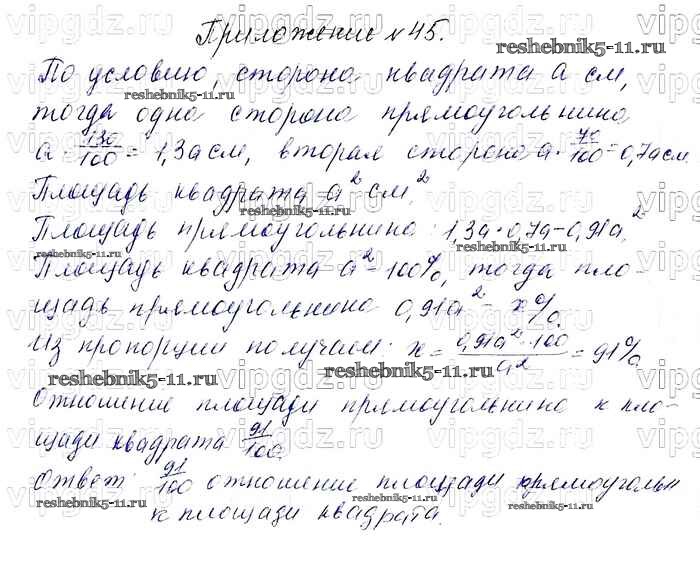 Приложение №45.
По условию, сторона квадрата a см,
тогда одна сторона прямоугольника
a · 130/100 = 1,3a см, вторая сторона a · 70/100 = 0,7a см
Площадь квадрата a² см².
Площадь прямоугольника: 1,3a · 0,7a = 0,91a²
Площадь квадрата a² – 100%, тогда пло-
щадь прямоугольника 0,91a² – x%.
Из пропорции получаем: x = 0,91a² · 100/a² = 91%.
Отношение площади прямоугольника к пло-
щади квадрата 91/100.
Ответ: 91/100 отношение площади прямоугольн
к площади квадрата.
vipgdz.ru
reshebnik5-11.ru